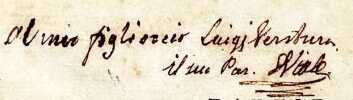 Al mio figlioccio Luigi Verstura
il suo Par.